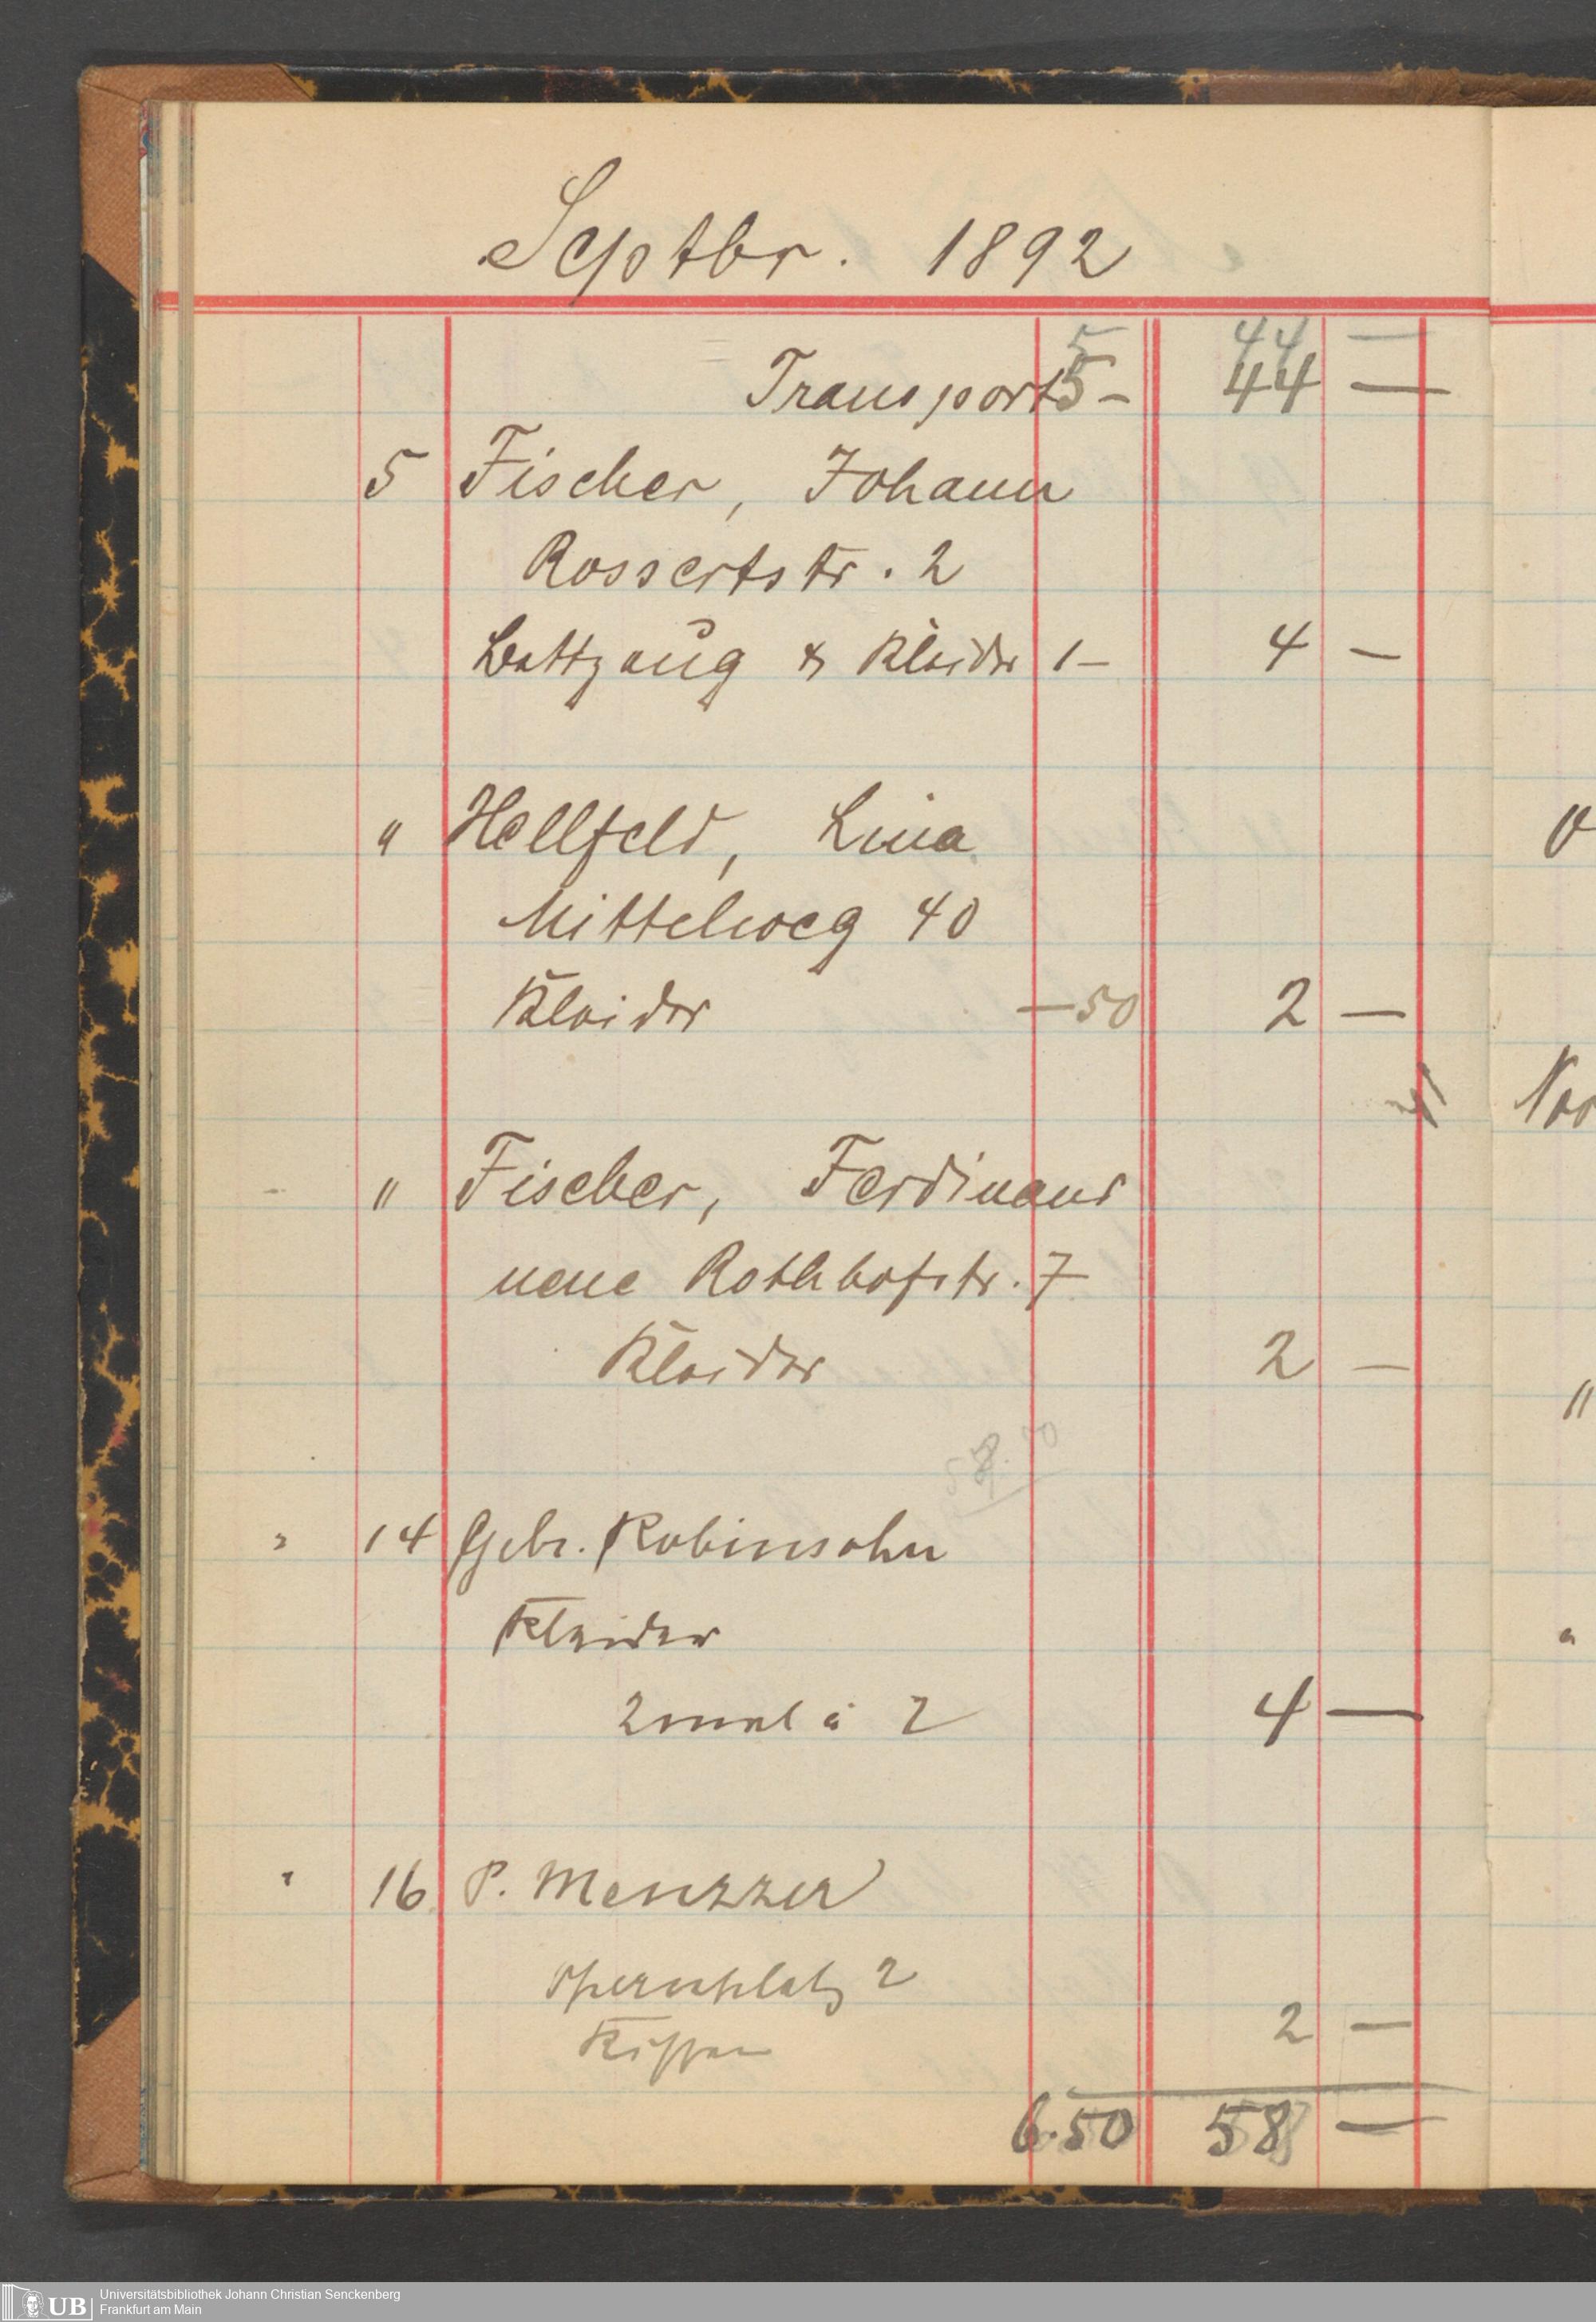 Septbr. 1892
5 44 —
Transport 5 – 44 —
5 Fischer, Johann
Rossertstr. 2
Bettzeug & Kleider 1 – 4 —
" Hellfeld, Lina
Mittelweg 40
Kleider — 50 2 —
" Fischer, Ferdinand
neue Rothhofstr. 7
Kleider 2 —
" 14 Gebr. Robinsohn
Kleider
2 mal à 2 4 —
" 16 P. Menzzer
Opernplatz 2
Kissen 2 —
6.50 58 —
O
Nov
"
"
UB Universitätsbibliothek Johann Christian Senckenberg
Frankfurt am Main